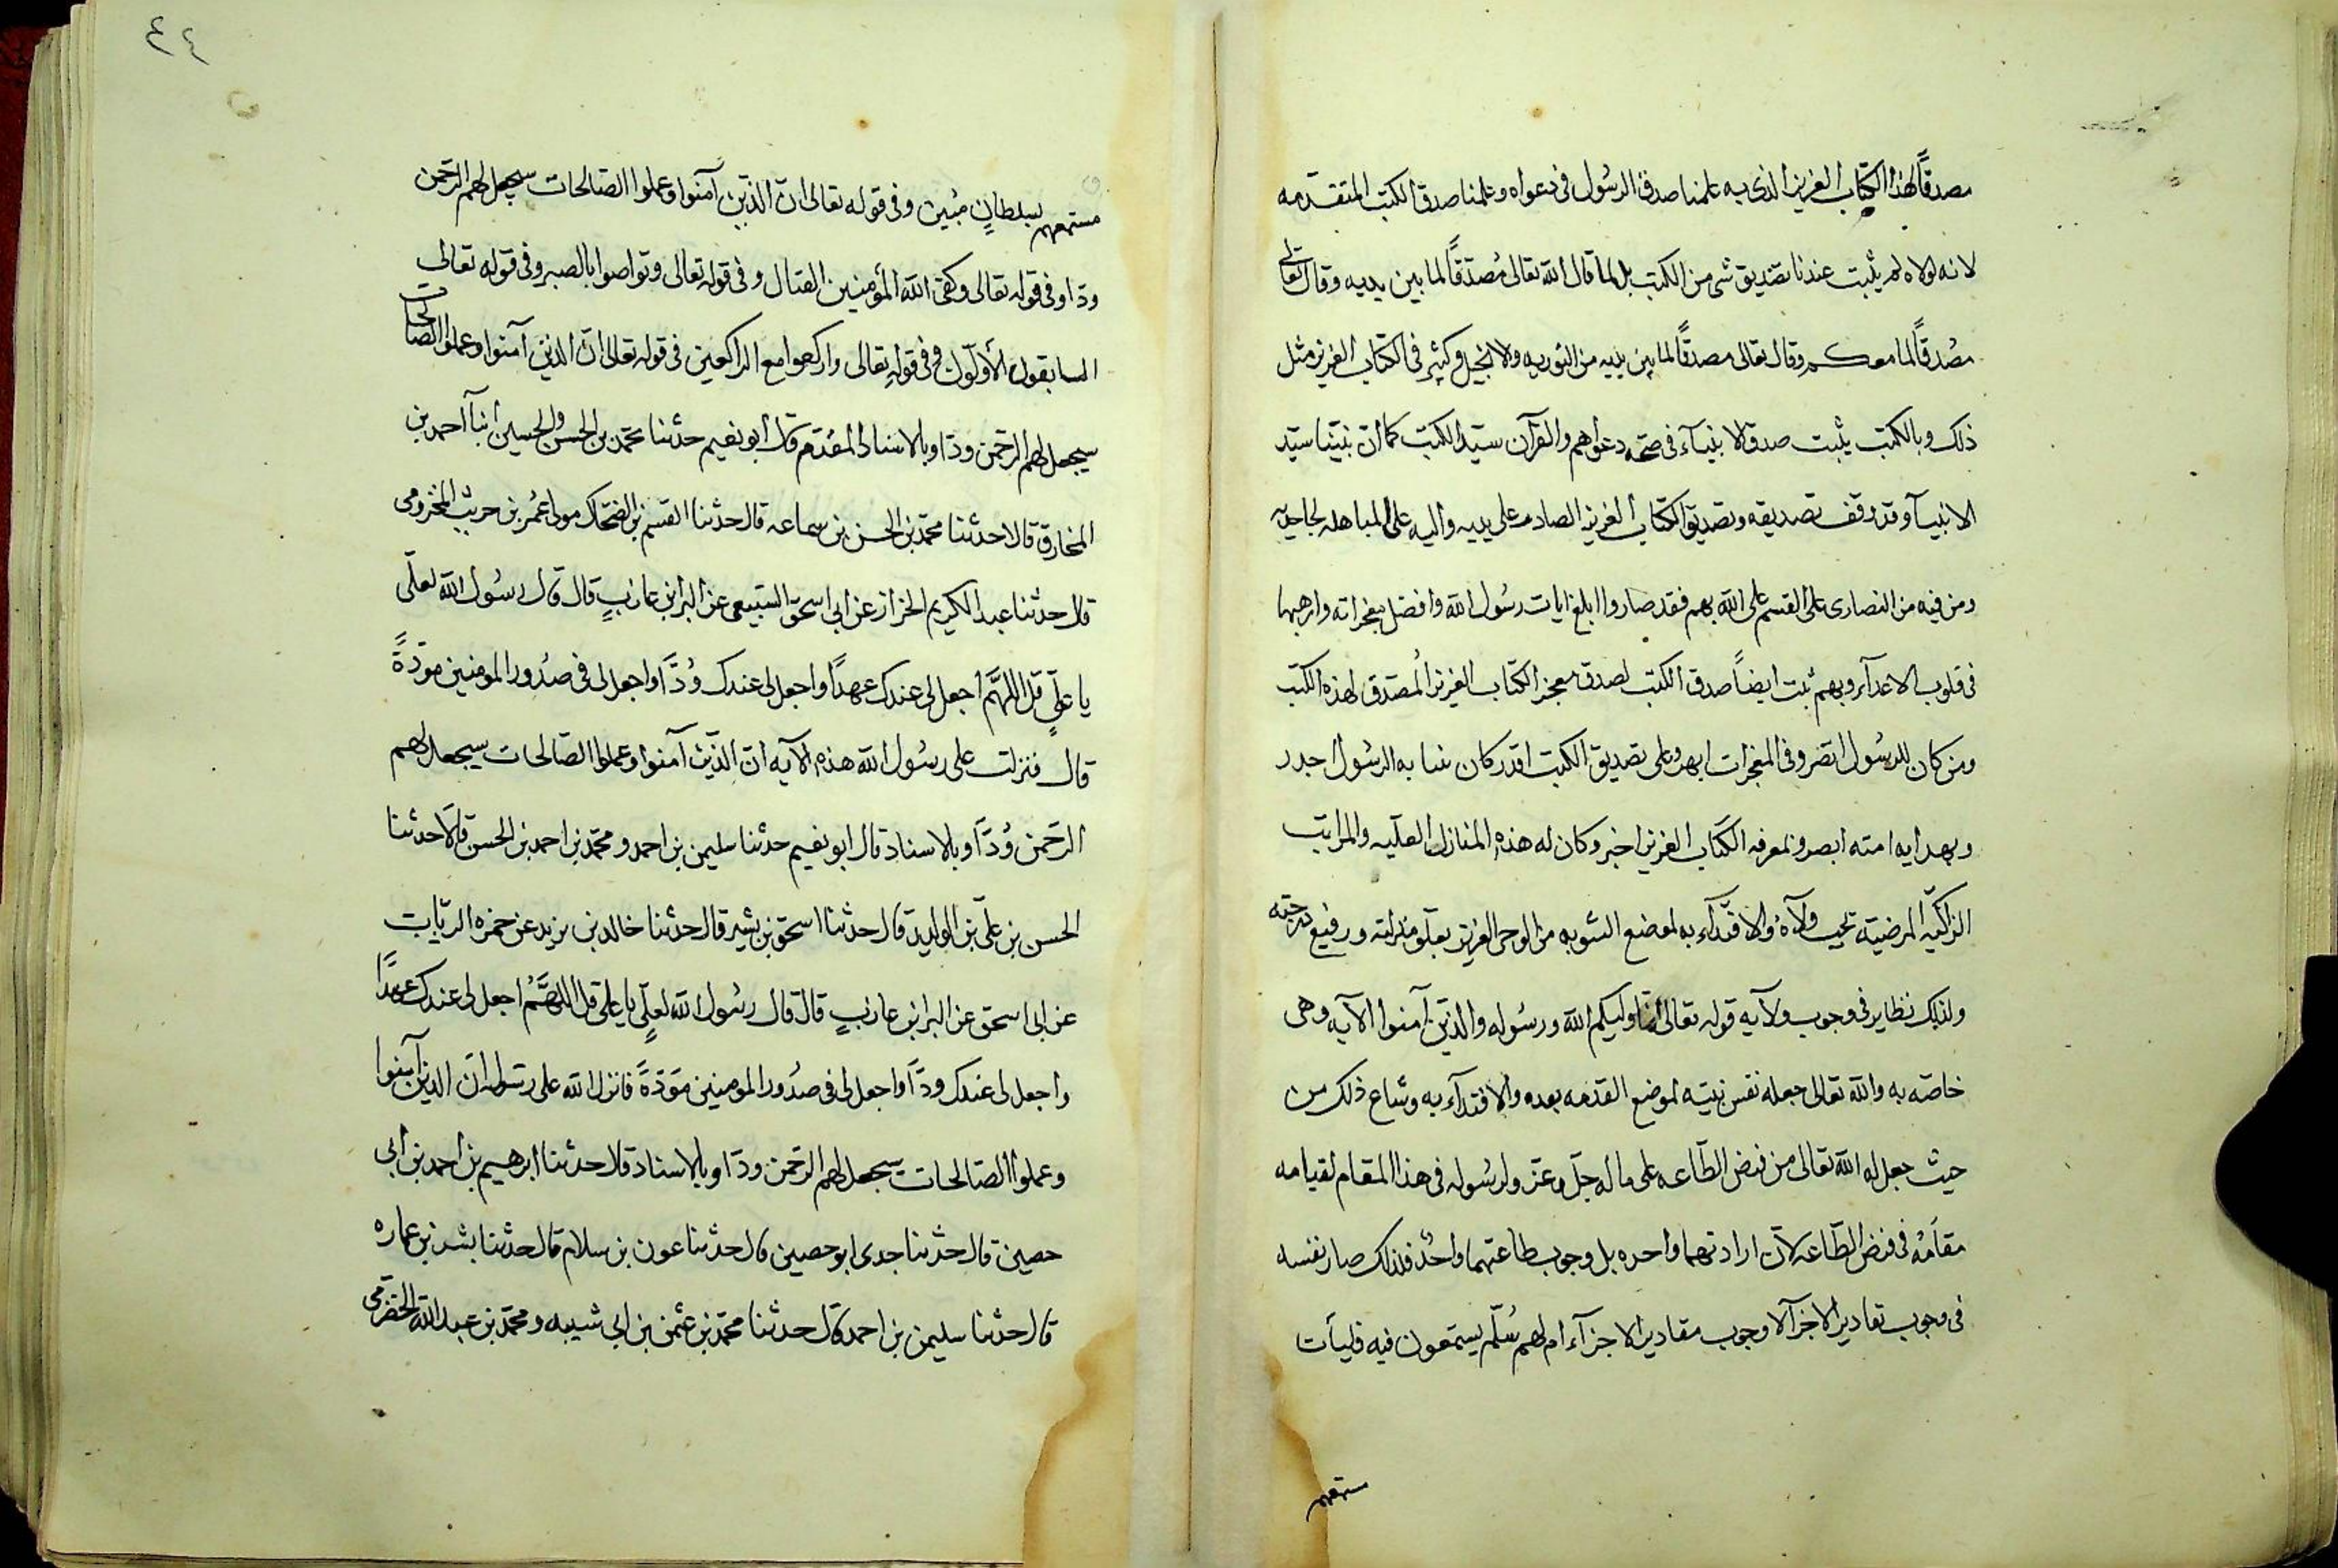 مصدقاً لهذا الكتاب العزيز الذى به علمنا صدق الرسُول فى دعواه وعلمنا صدق الكتب المتقدمه
لانه لولاه لم يثبت عندنا تصديق شى من الكتب بل لما قال الله تعالى مُصدقاً لما بين يديه وقال تعالى
مصُدقاً لما معكم وقال تعالى مصدقاً لما بين يديه من التوريه والانجيل وكثير فى الكتاب العزيز مثل
ذلك وبالكتب يثبت صدق الانبيآء فى صحه دعواهم والقرآن سيّد الكتب كما انّ نبيّنا سيّد
الانبيآ وقد وقف تصديقه وتصديق الكتاب العزيز الصادر على يديه واليه على المباهله لجاحديه
ومن فيه من النصارى على القسم على الله بهم فقد صاروا ابلغ ايات رسُول الله وافضل معجزاته وارهبها
فى قلوب الاعدآء وبهم ثبت ايضاً صدق الكتب لصدق معجز الكتاب العزيز المُصَدق لهذه الكتب
ومن كان للرسُول انصر وفى المعجزات ابهر وعلى تصديق الكتب اقدر كان منابه الرسُول اجدر
وبهدايه امته ابصر وبمعرفه الكتاب العزيز اخبر وكان له هذه المنازل العليّه والمراتب
الزاكيّه المرضيّه تجب ولآؤهُ والاقتدآء به لموضع التنويه من الوحى العزيز بعلّو منزلته ورفيع درجته
ولذلك نظاير فى وجوب ولايه قوله تعالى انما وليكم الله ورسُوله والذيّن آمنوا الآيه وهى
خاصّه به والله تعالى جعله نفس نبيّه لموضع القدمه بعده والاقتدآء به وشاع ذلك من
حيث جعل له الله تعالى من فرض الطّاعه على ما له جلّ وعزّ ولرسُوله فى هذا المقام لقيامه
مقامَهُ فى فرض الطّاعه لانّ ارادتهما واحده بل وجوب طاعتهما واحدُ فلذلك صار نفسه
فى وجوب تقادير الاجزآء لا وجوب مقادير الاجزآء ام لهم سُلّم يستمعون فيه فليأت
مستمعهم
٤٤
مستمعهم بسلطانٍ مُبين وفى قوله تعالى انّ الذيّن آمنوا وعملوا الصّالحات سيجعل لهم الرّحمن
ودّا وفى قوله تعالى وكفى الله المُؤمنين القتال وفى قوله تعالى وتواصوا بالصبر وفى قوله تعالى
السابقون الأوّلون وفى قوله تعالى واركعوا مع الراكعين فى قوله تعالى انّ الذين آمنوا وعملوا الصّالحات
سيجعل لهم الرّحمن ودّا وبالاسناد المُقدّم قال ابو نعيم حدثنا محمّد بن الحسن والحسين أنبأ احمد بن
المخارق قالا حدثنا محمّد بن الحسن بن سماعه قال حدثنا القسم بن الضحّاك مولى عُمر بن حريث المخزومى
قال حدثنا عبد الكريم الخزاز عن ابى اسحق السّبيعى عن البرا بن عازبٍ قال قال رسُول الله لعلّى
يا علّىٍ قل اللهمَّ اجعل لى عندك عهداً واجعل لى عندك وُدَّاً واجعل لى فى صدُور المومنين مودّةً
قال فنزلت على رسُول الله هذه الآيه انّ الذّين آمنوا وعملوا الصّالحات سيجعل لهم
الرّحمن وُدّاً وبالاسناد قال ابو نعيم حدثنا سليمن بن احمد ومحمّد بن احمد بن الحسن قالا حدثنا
الحسن بن علّى بن الوليد قال حدثنا اسحق بن بشير قال حدثنا خالد بن يزيد عن حمزه الزيّات
عن ابى اسحق عن البرا بن عازبٍ قال قال رسُول الله لعلّىٍ يا على قل اللهمَّ اجعل لى عندك عهداً
واجعل لى عندك ودّاً واجعل لى فى صدُور المومنين موَدّةً فانزل الله على رسُوله انّ الذين آمنوا
وعملوا الصّالحات سيجعل لهم الرّحمن ودّا وبالاسناد قال حدثنا ابرهيم بن احمد بن ابى
حصين قال حدثنا جدى ابو حصين قال حدثنا عون بن سلام قال حدثنا بشر بن عماره
قال حدثنا سليمن بن احمد قال حدثنا محمّد بن عثمن بن ابى شيبه ومحمّد بن عبد الله الحضرمى